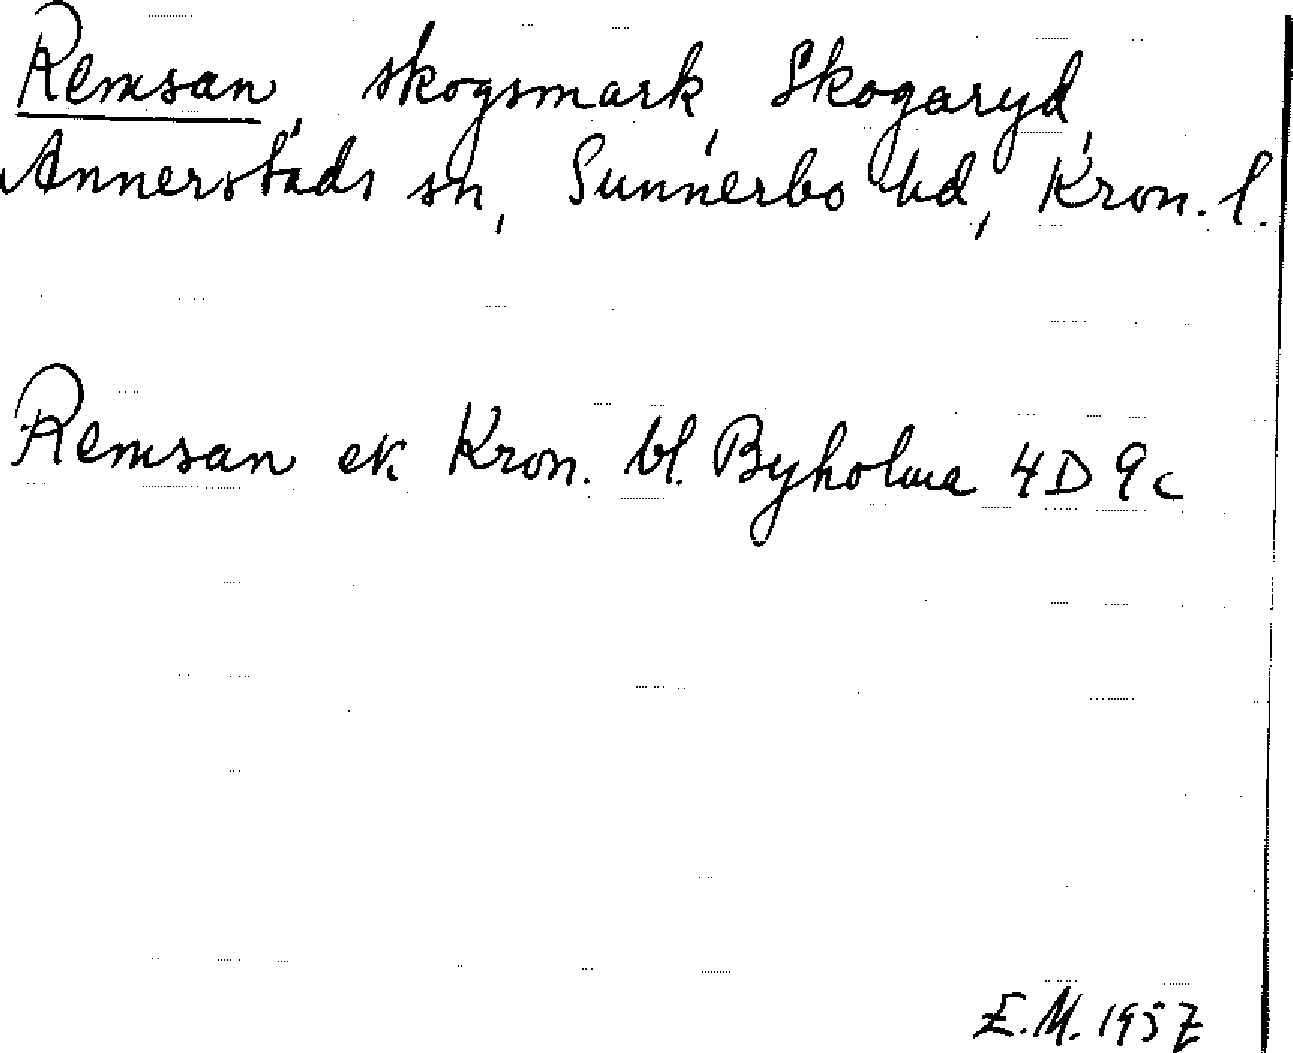 Remsan, skogsmark, Skogaryd,
Annerstads sn, Sunnerbo hd, Kron. l.
Remsan ek Kron. bl. Byholma 4D 9c
E.M. 1957